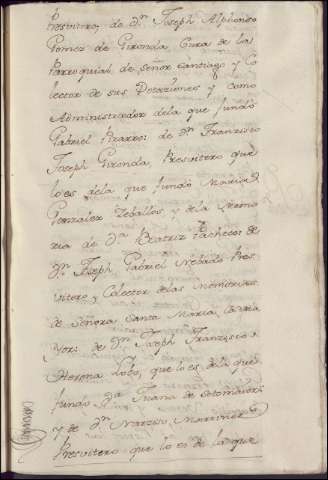 Presvitero, de Dn. Joseph Alphonso
Gomez de Gironda, Cura de la
Parroquial, de Señor Santiago y Co
lector de sus Dotaziones y como
Administrador dela que fundó
Gabriel Pizarro: de Dn. Franzisco
Joseph Gironda, Presvitero que
lo es dela que fundó Maria
Gonzalez Zeballos, y de la Memo
ria de Da. Beatriz Pacheco: de
Dn. Joseph Gabriel Nebado Pres
vitero y Colector de las Memorias
de Señora Santa Maria, la Ma
Yor: de Dn. Joseph Franzisco
Herena Lobo, que lo es dela que
fundó Da. Juana de Sotomaior:
y de Dn. Narziso
Presvitero que lo es de la que